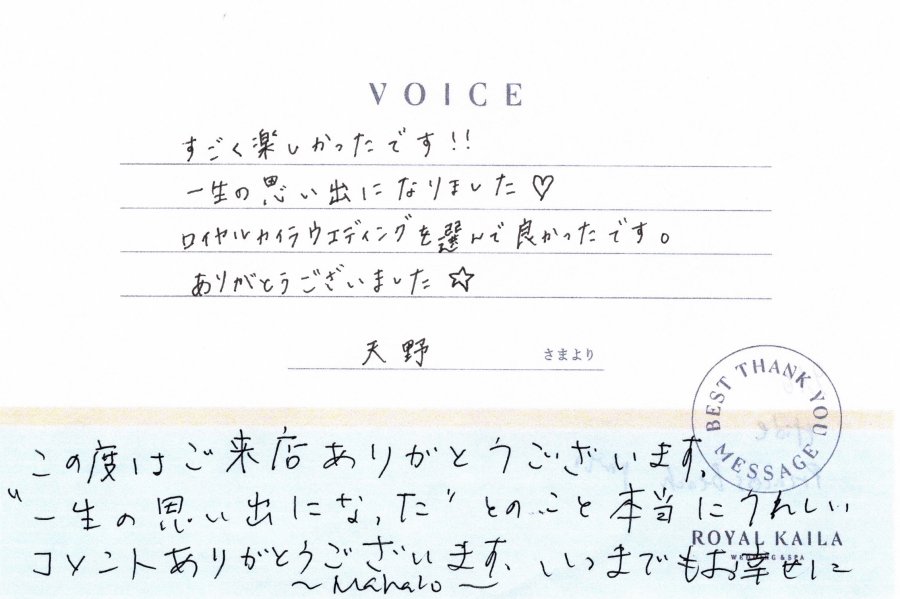 VOICE
すごく楽しかったです!!
一生の思い出になりました♡
ロイヤルカイラウエディングを選んで良かったです。
ありがとうございました☆
天野 さまより
BEST THANK YOU MESSAGE
この度はご来店ありがとうございます。
"一生の思い出になった" とのこと本当にうれしい
ROYAL KAILA
WEDDING & SPA
コメントありがとうございます。いつまでもお幸せに
~Mahalo~